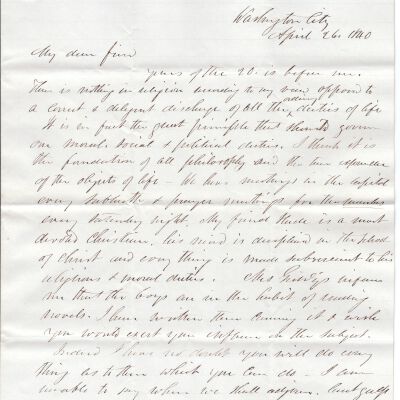 Washington City
April 26. 1840
My dear
yours of the 20. is before me.
There is nothing in religion according to my view opposed to
a correct & diligent discharge of all the ordinary duties of life
It is in fact the great principle that should govern
our moral, social & political duties. I think it is
the foundation of all philosophy and the true
of the objects of life - We have meetings in the capitol
every Sabbath & prayer meetings for the members
every Saturday night. My friend is a most
devoted Christian, his mind is disciplined in the school
of Christ and every thing is made subservient to his
religious & moral duties. Mrs informs
me that the boys are in the habit of reading
novels. I have written them & wish
you would exert your influence on the subject.
Indeed I have no doubt you will do every
thing as to them which you can do - I am
unable to say when we shall adjourn.